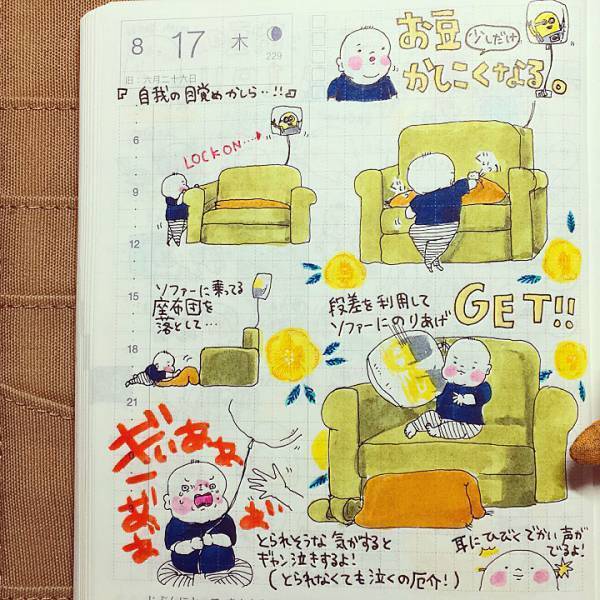 8 17 木
229
旧:六月二十六日
お豆 少しだけ
かしこくなる。
『自我の目覚めかしら‥!!』
LOCK ON‥‥
6
9
12
15
18
21
ソファーに乗ってる
座布団を
落として…
段差を利用して
ソファーにのりあげ
GET!!
ぎぃあぁぁ
とられそうな気がすると
ギャン泣きするよ!
(とられなくても泣くの厄介!)
耳にひびくでかい声が
でるよ!